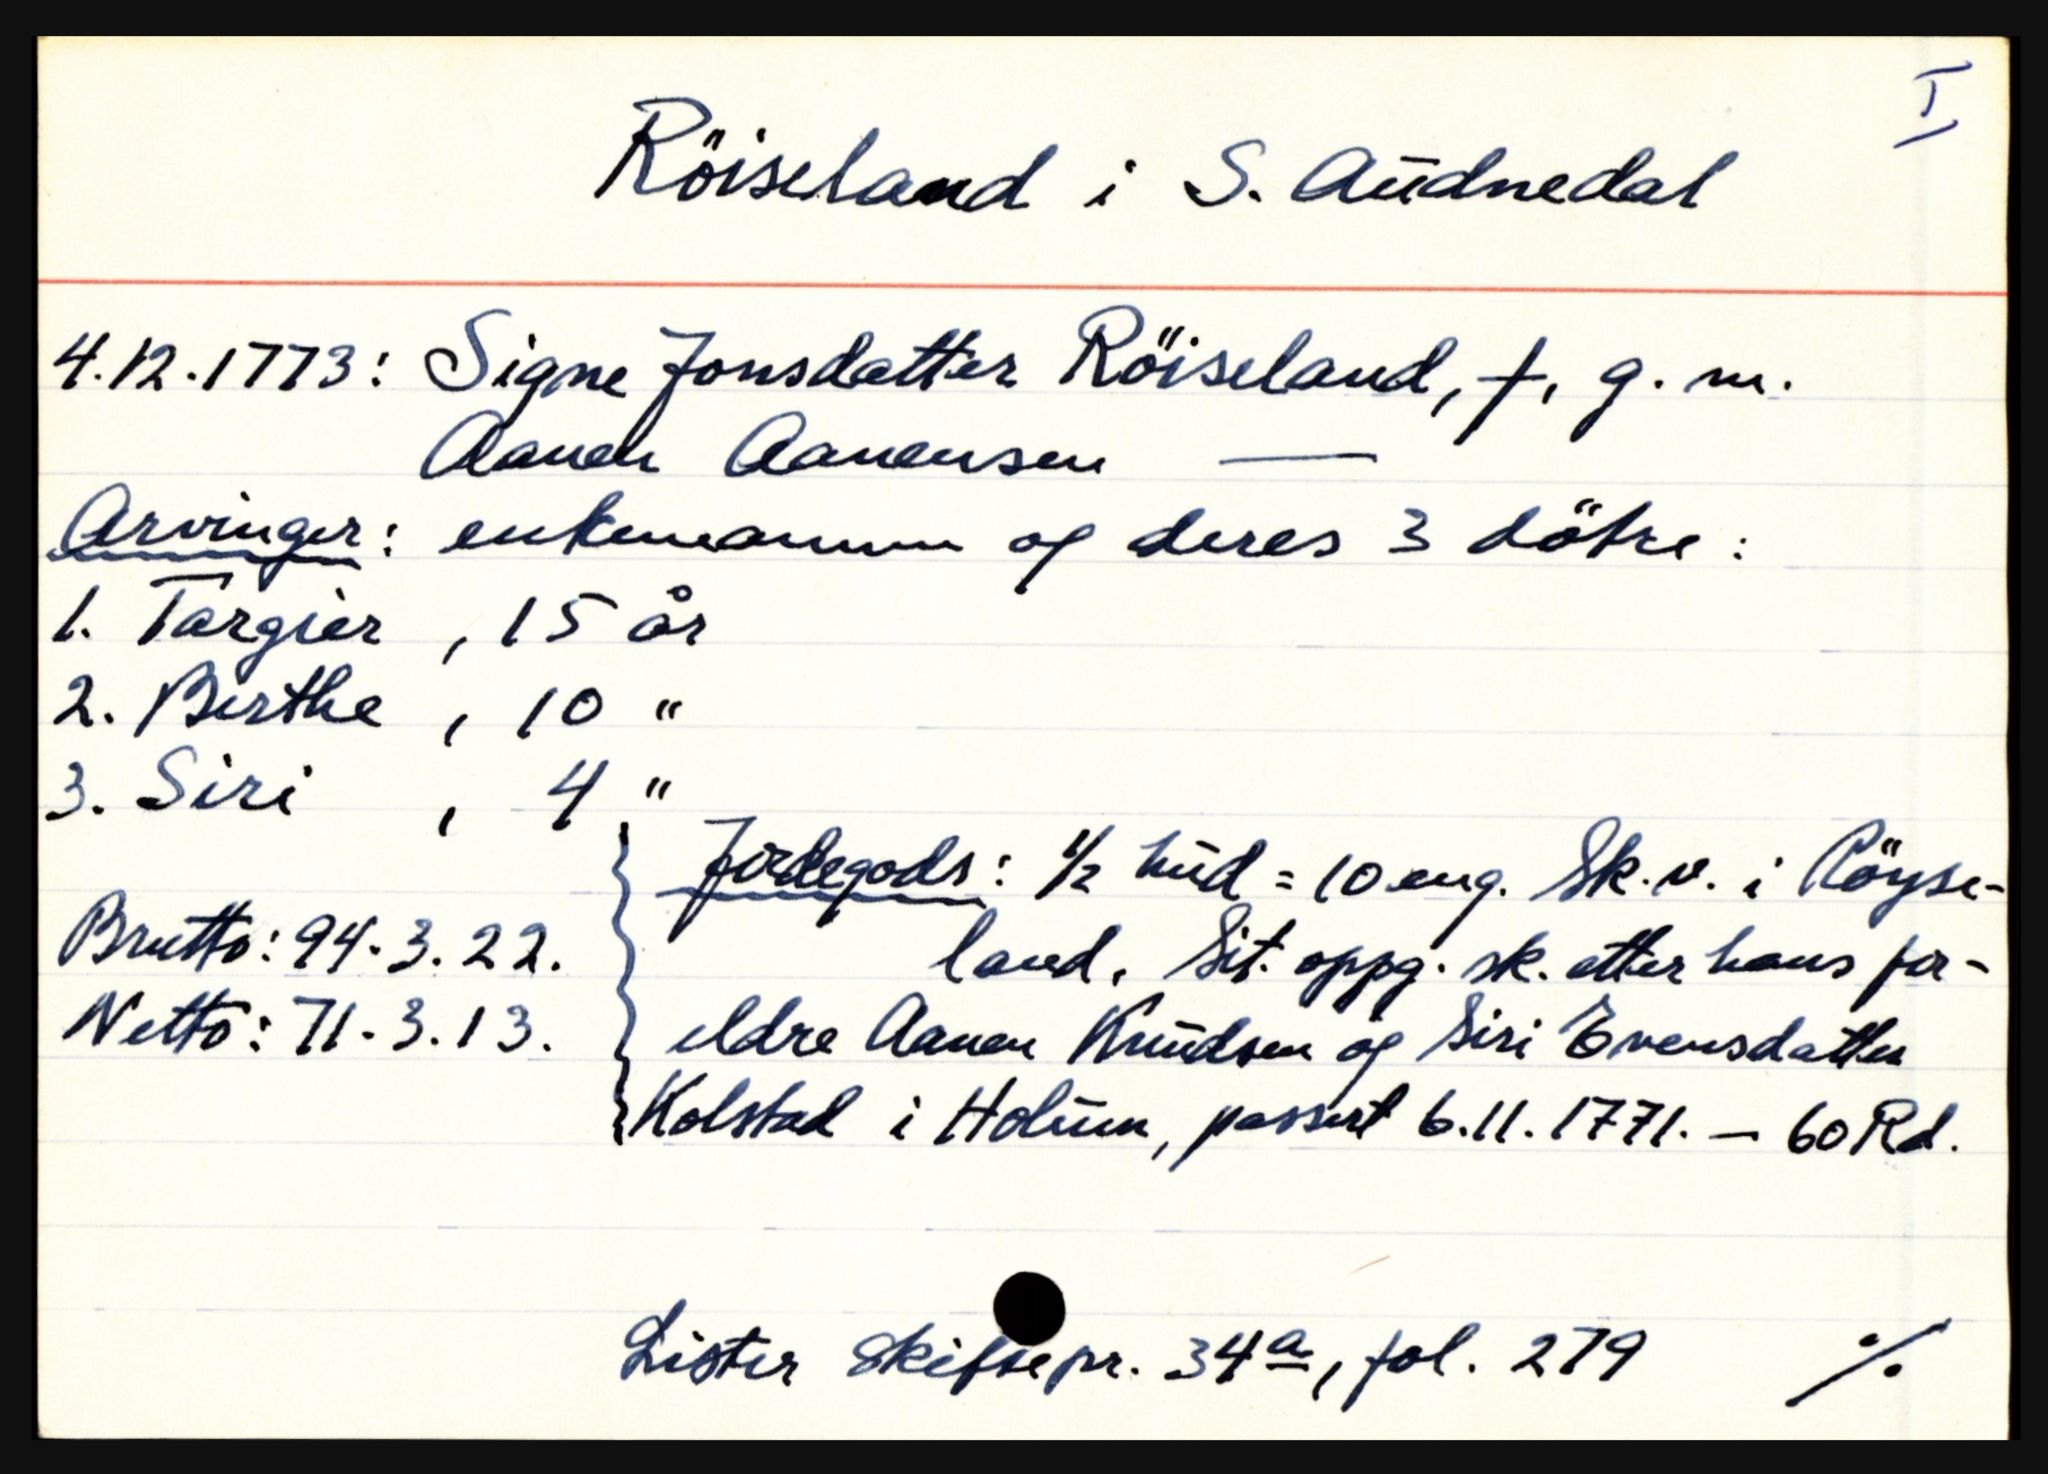 I
Röiseland i S. Audnedal
4.12.1773: Signe Jonsdatter Röiseland, †, g. m.
Aanen Aanensen —
Arvinger: enkemannen og deres 3 dötre:
1. Targier, 15 år
2. Berthe, 10 "
3. Siri, 4 "
Brutto: 94-3.22.
Netto: 71-3.13.
Jordegods: 1/2 hud = 10 eng. Sk.v. i Röyse-
land. Sit. oppg. sk. etter hans for-
eldre Aanen Knudsen og Siri Evensdatter
Kolstad i Holum, passert 6.11.1771. — 60 Rd.
Lister skiftepr. 34a, fol. 279 ./.